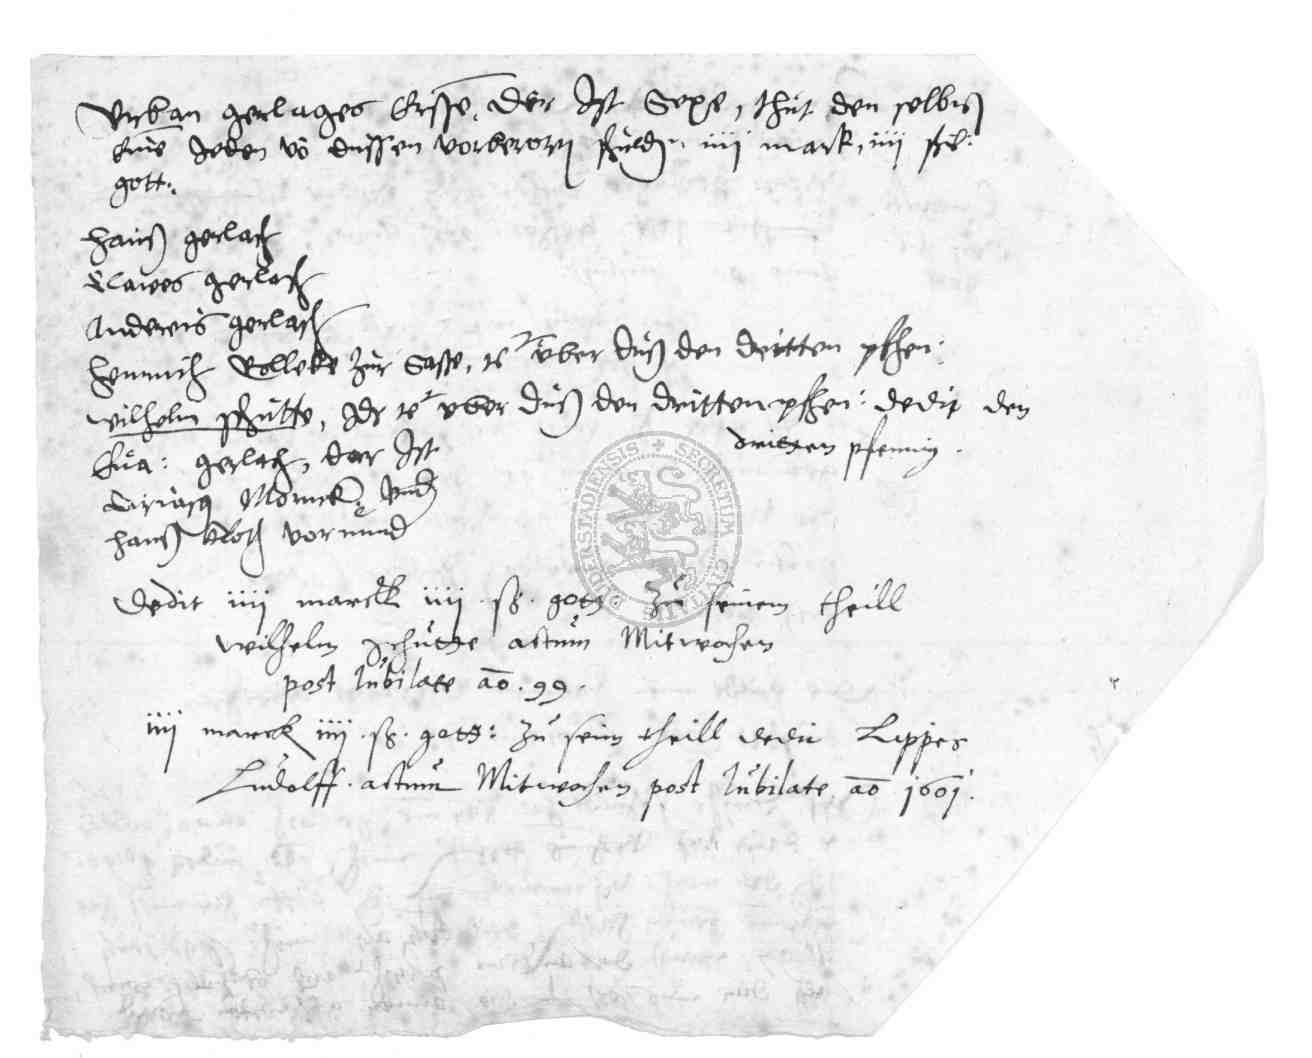 Urban gerlages Erffe, der Ist Sexe, thut den selbig
Eine Jeden vo dussen vorberory schuldg. iiij mark, iiij schl:
gott:
Hanß gerlach
Clawes gerlach
Anderis gerlach
Henrich Rolleke zur Sasse, uber duß den dritten pfhen:
wilhelm schutte, uber duß den dritten pfhen: dedit den
dritten pfennig.
Eua: gerlach, der Ist
Ciriacg Monick, und
Hanß vormund
Dedit iiij marck iiij sz. gotz zu seinem theill
wilhelm schutze actum Mitwochen
post Jubilate ao. 99.
iiij marck iiij. sz. gotz: zu seim theill dedit Lippes
Ludolff. actum Mitwochen post Jubilate ao 1601.
SECRETUM CIVITATIS DUDERSTADIENSIS